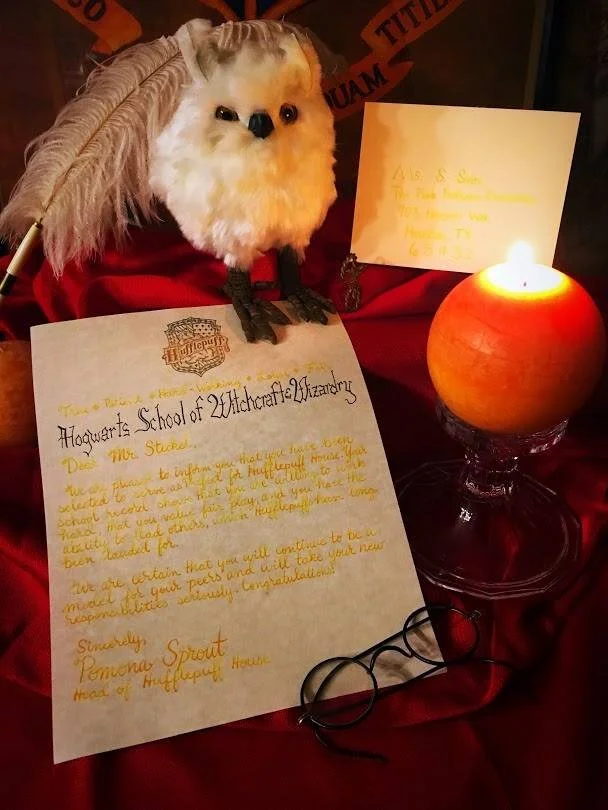 TITIL
QUAM
Ms. S.
Houston, TX
Hufflepuff
True • Patient • Hard-Working • Loyal • Fair
Hogwarts School of Witchcraft & Wizardry
Dear Mr. Steckel,
We are pleased to inform you that you have been
selected to serve as Prefect for Hufflepuff House. Your
school record shows that you are willing to work
hard, that you value fair play, and you have the
ability to lead others, which Hufflepuffs have long
been lauded for.
We are certain that you will continue to be a
model for your peers and will take your new
responsibilities seriously. Congratulations!
Sincerely,
Pomona Sprout
Head of Hufflepuff House